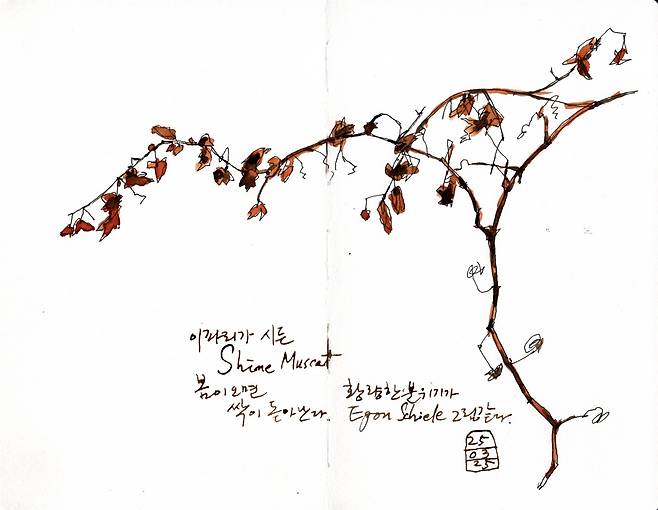 이파리가 시든
Shine Muscat
봄이오면
싹이 돋아난다.
황량한 분위기가
Egon Schiele 그림같다.
25
03
25